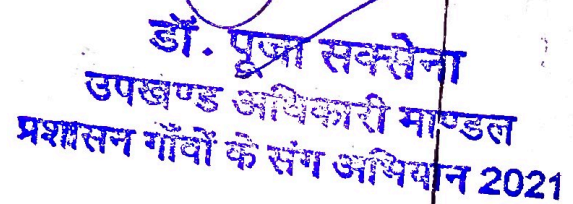 डॉ. पूजा सक्सेना
उपखण्ड अधिकारी माण्डल
प्रशासन गाँवों के संग अभियान 2021